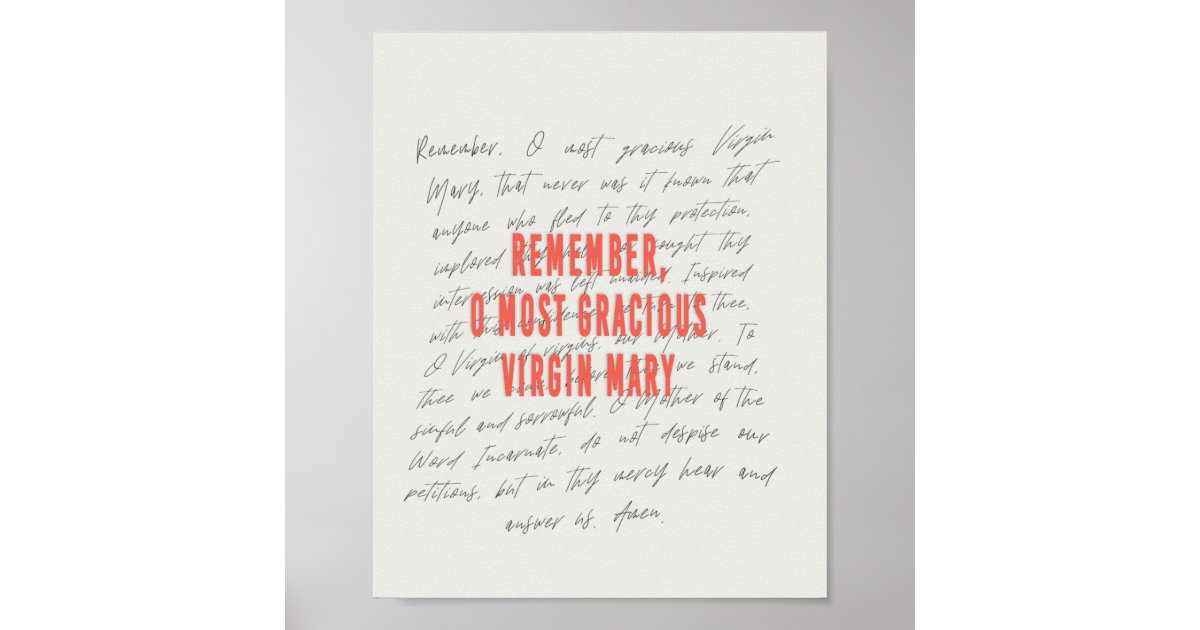 Remember, O most gracious Virgin
Mary, that never was it known that
anyone who fled to thy protection,
implored thy help or sought thy
intercession was left unaided. Inspired
with this confidence, we turn to thee,
O Virgin of virgins, our Mother. To
thee we come, before thee we stand,
sinful and sorrowful. O Mother of the
Word Incarnate, do not despise our
petitions, but in thy mercy hear and
answer us. Amen.
REMEMBER,
O MOST GRACIOUS
VIRGIN MARY